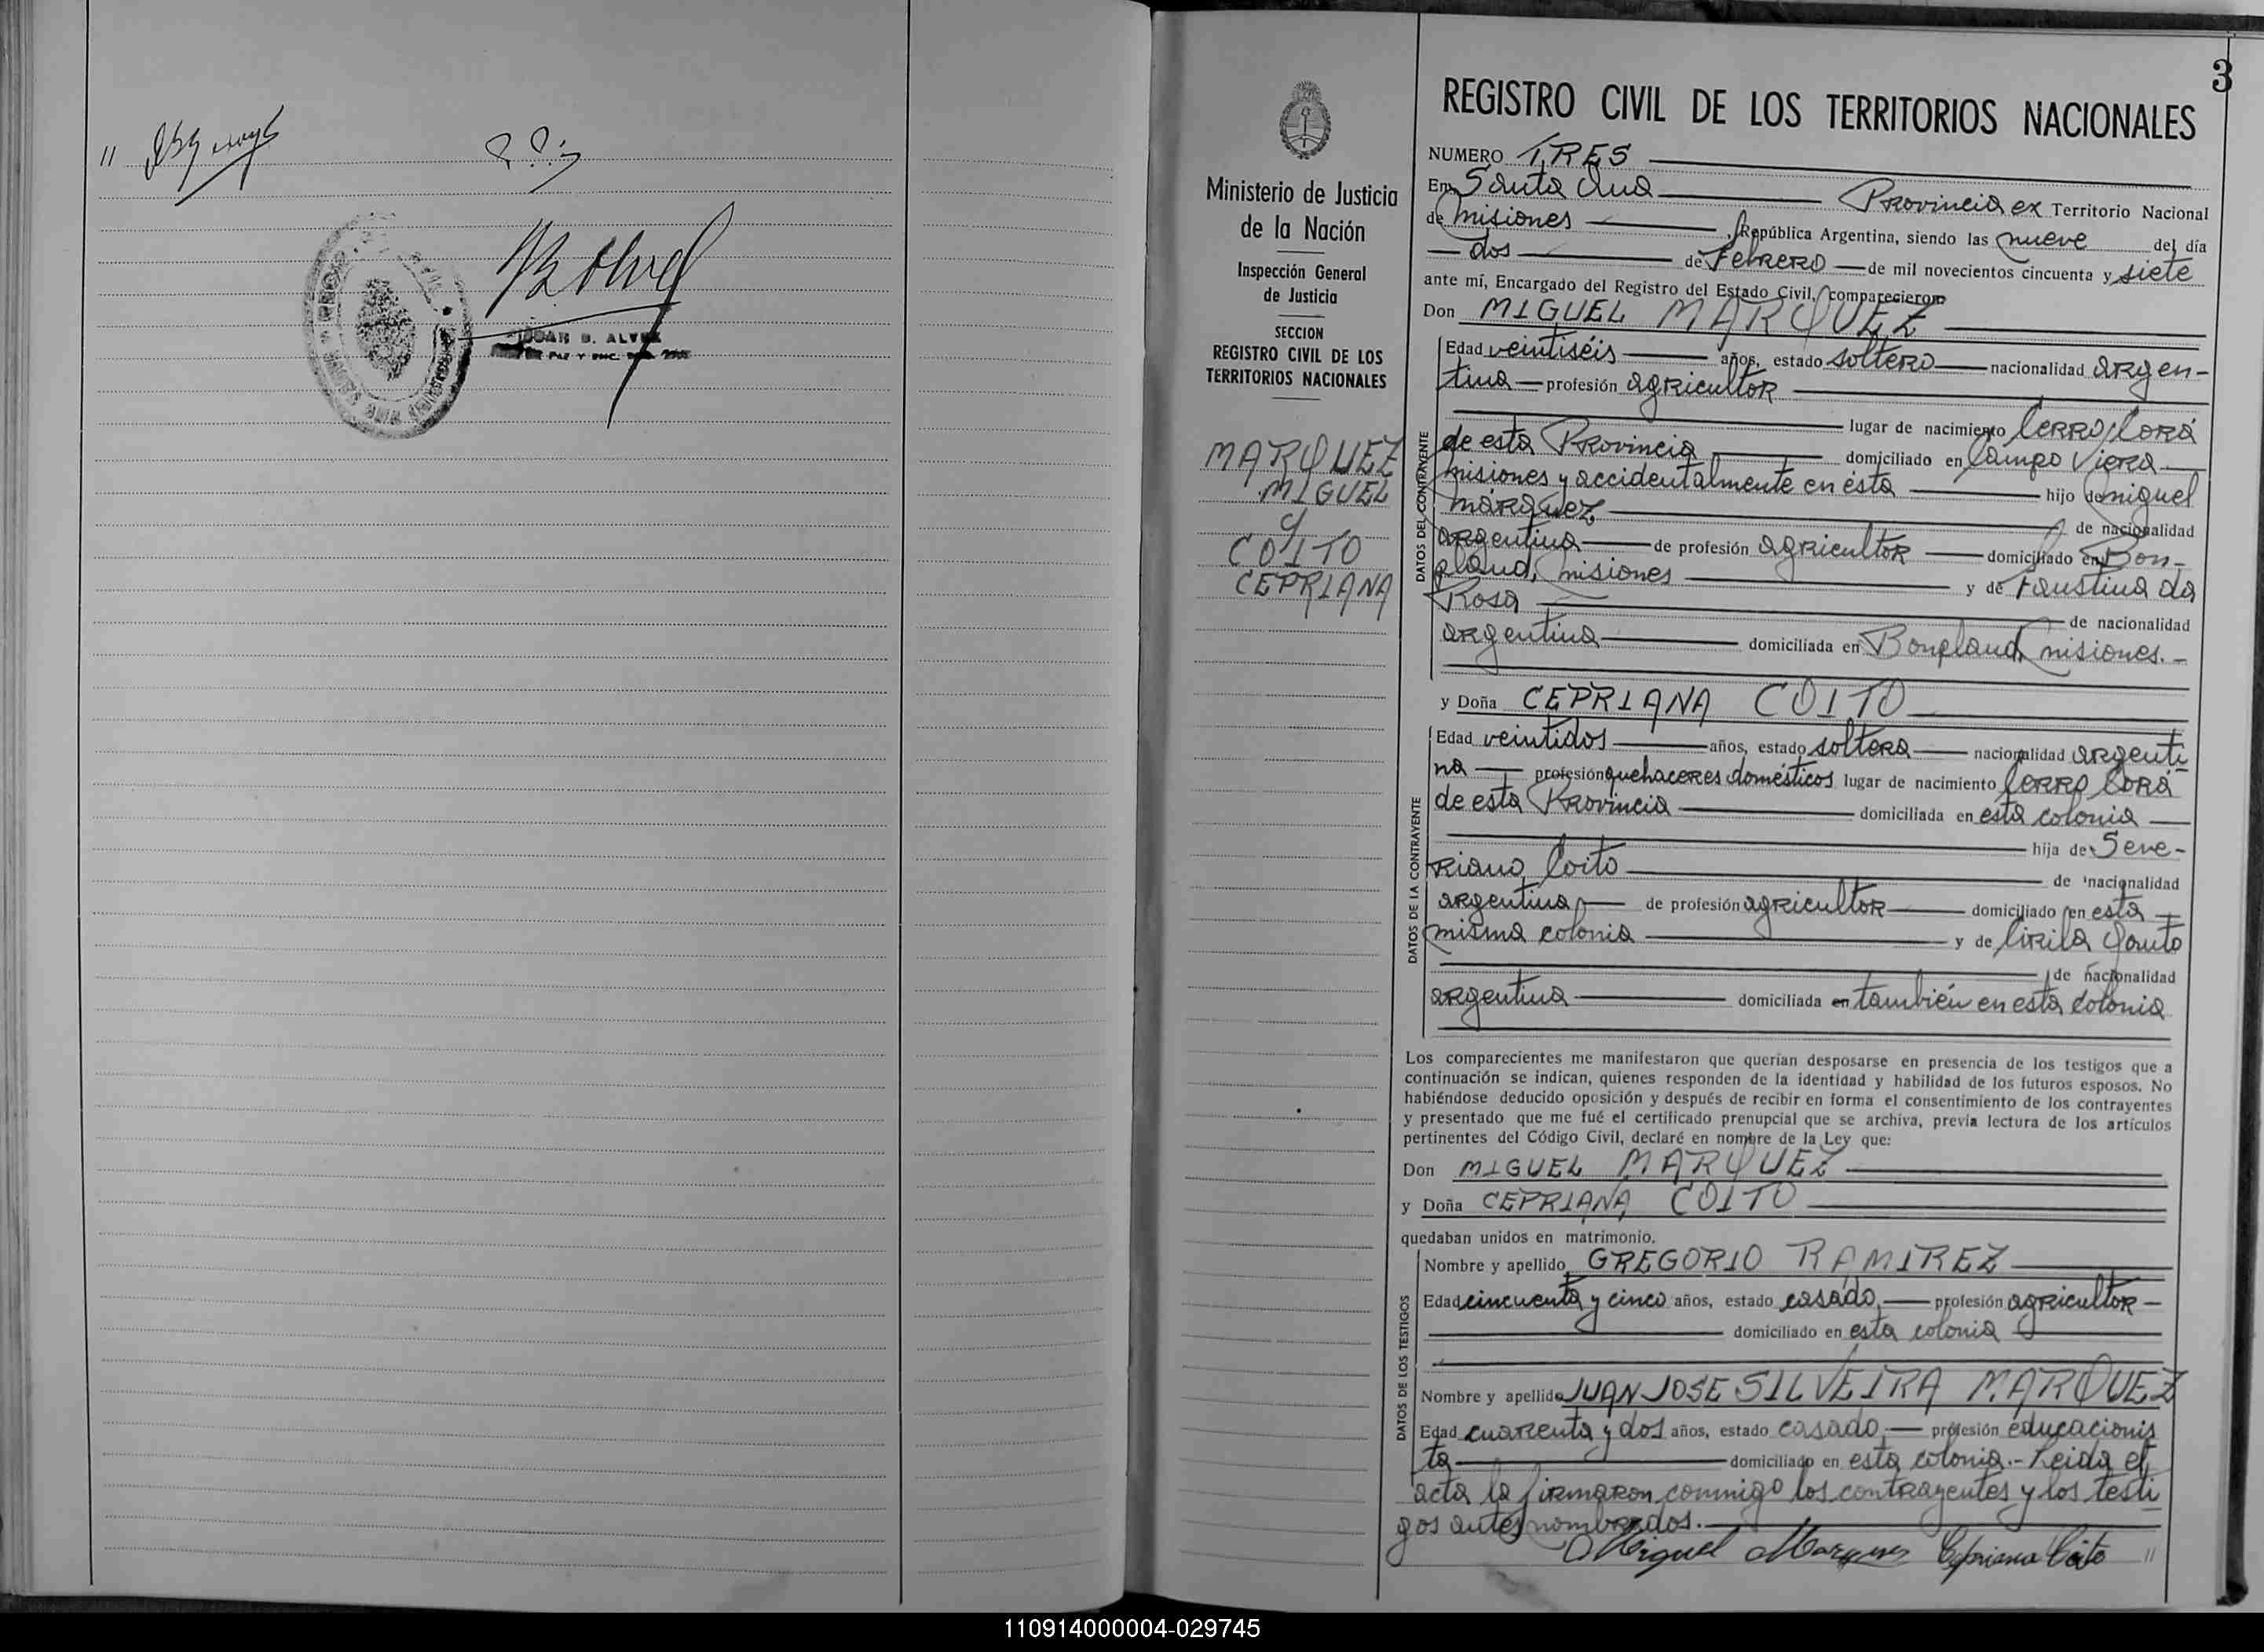 "
JUAN B. ALVEZ
3
REGISTRO CIVIL DE LOS TERRITORIOS NACIONALES
Ministerio de Justicia
de la Nación
Inspección General
de Justicia
SECCION
REGISTRO CIVIL DE LOS
TERRITORIOS NACIONALES
MARQUEZ
MIGUEL
c/
COITO
CEPRIANA
NUMERO TRES
En Santa Ana Provincia ex Territorio Nacional
de Misiones, República Argentina, siendo las nueve del día
dos de Febrero de mil novecientos cincuenta y siete
ante mí, Encargado del Registro del Estado Civil, comparecieron
Don MIGUEL MARQUEZ
DATOS DEL CONTRAYENTE
Edad veintiséis años, estado soltero nacionalidad argen-
tina profesión agricultor
lugar de nacimiento Cerro Corá
de esta Provincia domiciliado en Campo Viera
Misiones y accidentalmente en ésta hijo de Miguel
Márquez de nacionalidad
argentina de profesión agricultor domiciliado en Bon-
pland, Misiones y de Faustina da
Rosa de nacionalidad
argentina domiciliada en Bonpland, Misiones.-
y Doña CEPRIANA COITO
DATOS DE LA CONTRAYENTE
Edad veintidos años, estado soltera nacionalidad argenti
na profesión quehaceres domésticos lugar de nacimiento Cerro Corá
de esta Provincia domiciliada en esta colonia
hija de Seve-
riano Coito de nacionalidad
argentina de profesión agricultor domiciliado en esta
misma colonia y de Cirila
de nacionalidad
argentina domiciliada en también en esta colonia
Los comparecientes me manifestaron que querían desposarse en presencia de los testigos que a
continuación se indican, quienes responden de la identidad y habilidad de los futuros esposos. No
habiéndose deducido oposición y después de recibir en forma el consentimiento de los contrayentes
y presentado que me fué el certificado prenupcial que se archiva, previa lectura de los artículos
pertinentes del Código Civil, declaré en nombre de la Ley que:
Don MIGUEL MARQUEZ
y Doña CEPRIANA COITO
quedaban unidos en matrimonio.
DATOS DE LOS TESTIGOS
Nombre y apellido GREGORIO RAMIREZ
Edad cincuenta y cinco años, estado casado, profesión agricultor
domiciliado en esta colonia
Nombre y apellido JUAN JOSE SILVEIRA MARQUEZ
Edad cuarenta y dos años, estado casado, profesión educacionis
ta domiciliado en esta colonia.- Leida el
acta la firmaron conmigo los contrayentes y los testi
gos antes nombrados.-
Miguel Marquez Cepriana Coito "
110914000004-029745